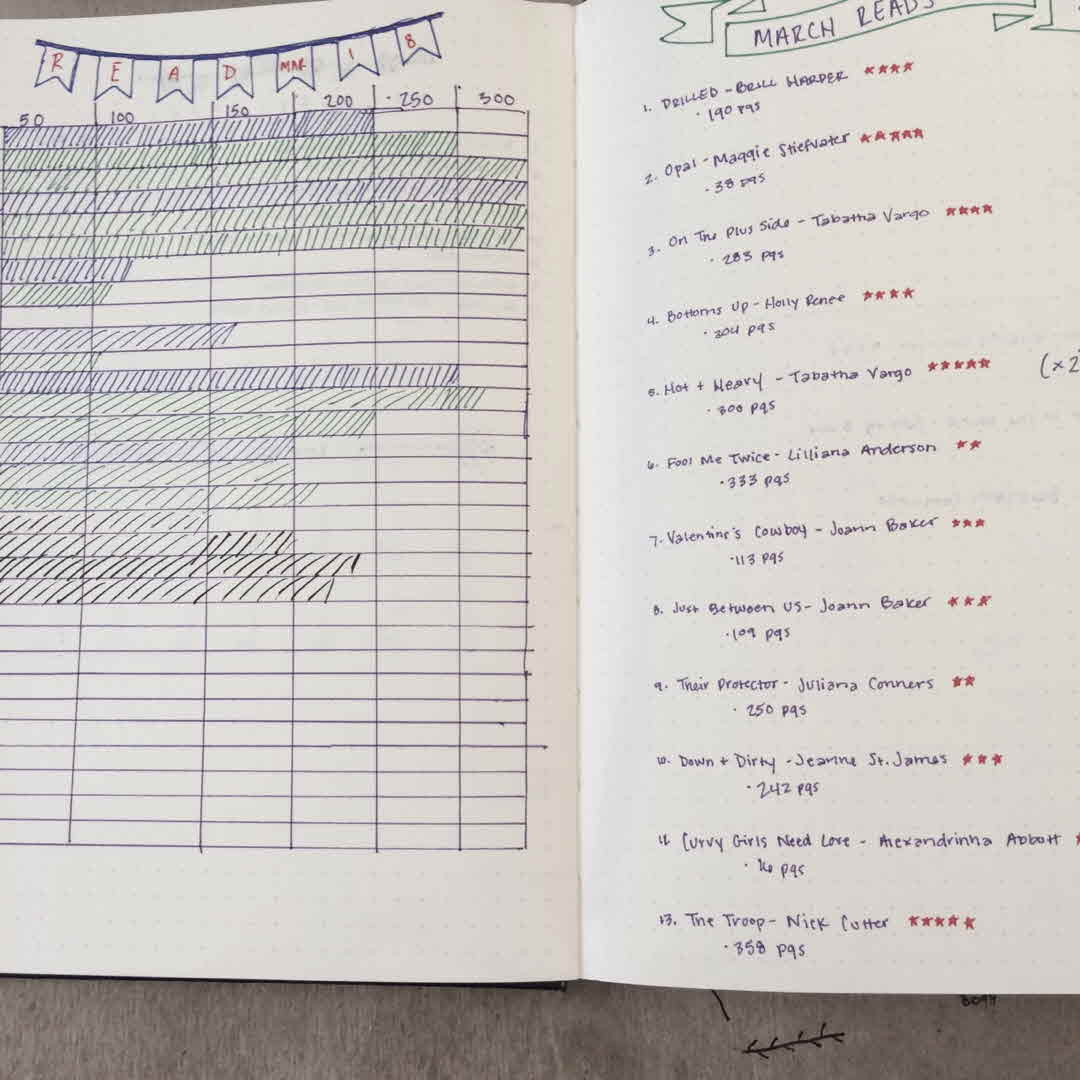 READ MAR 18
50 100 150 200 250 300
MARCH READS
1. DRILLED - BRILL HARPER ★★★★
· 190 pgs
2. Opal - Maggie Stiefvater ★★★★★
· 38 pgs
3. On The Plus Side - Tabatha Vargo ★★★★
· 283 pgs
4. Bottoms Up - Holly Renee ★★★★
· 304 pgs
5. Hot + Heavy - Tabatha Vargo ★★★★★ (x2
· 300 pgs
6. Fool Me Twice - Lilliana Anderson ★★
· 333 pgs
7. Valentine's Cowboy - Joann Baker ★★★
· 113 pgs
8. Just Between US - Joann Baker ★★★
· 109 pgs
9. Their Protector - Juliana Conners ★★
· 250 pgs
10. Down + Dirty - Jeanne St. James ★★★
· 242 pgs
12. Curvy Girls Need Love - Alexandrinha Abbott ★
· 16 pgs
13. The Troop - Nick Cutter ★★★★★
· 358 pgs